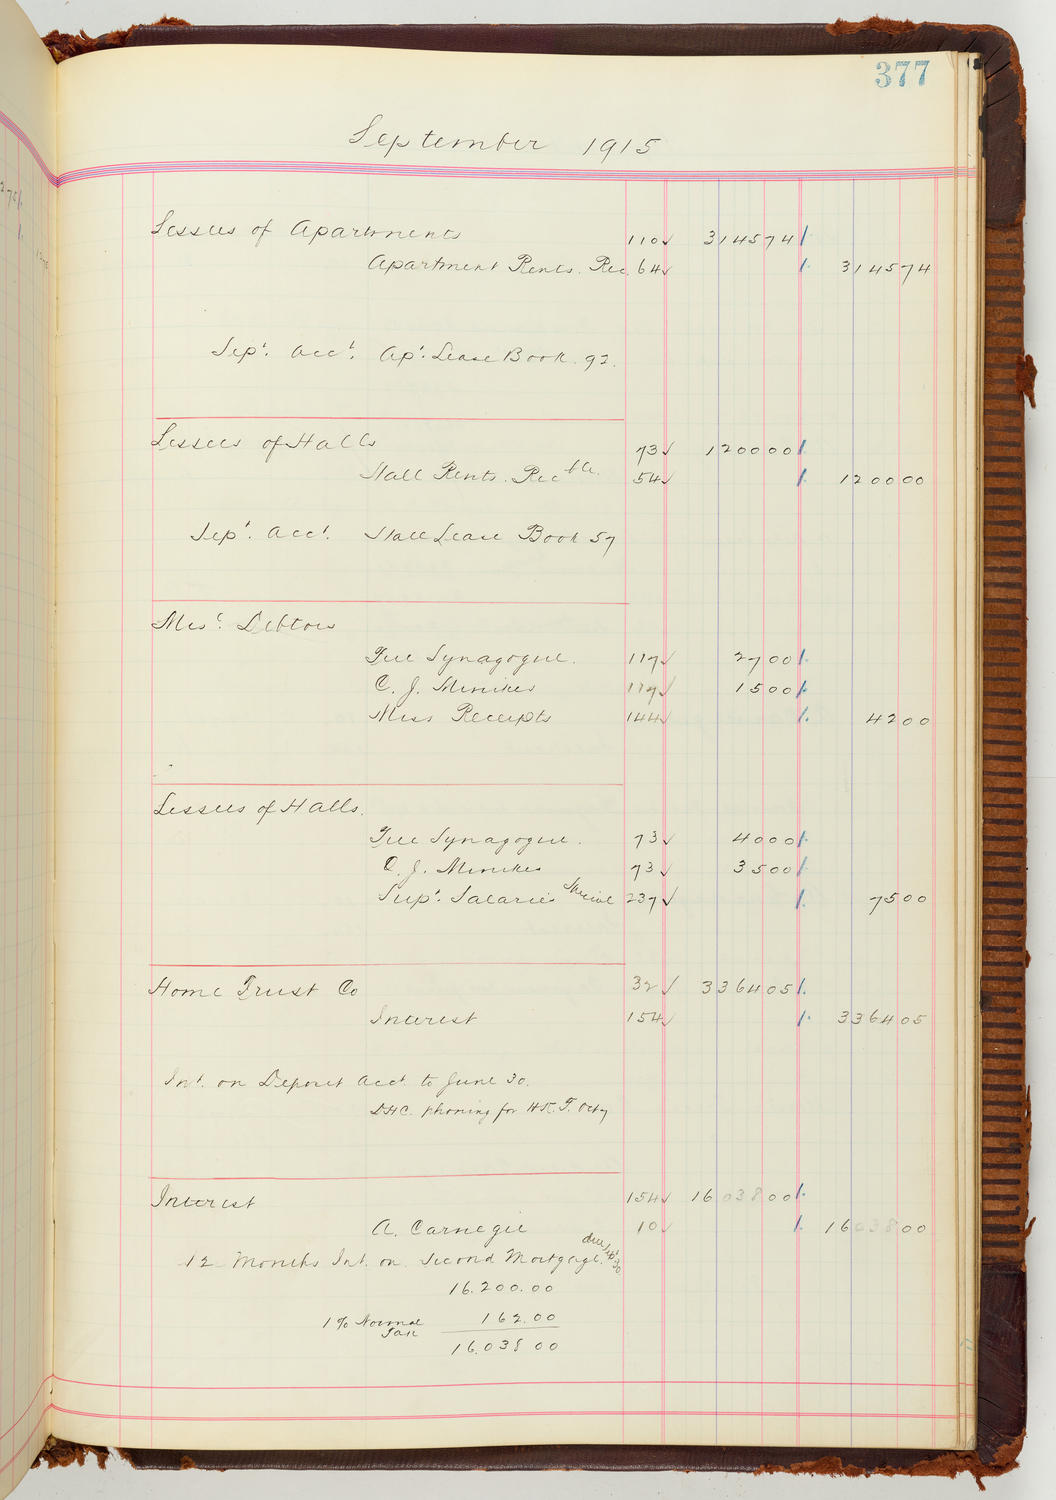 377
September 1915
Lessees of Apartments 110 ✓ 314574
Apartment Rents. Rec. 64 ✓ 314574
Sept. Acct. Apt. Lease Book. 92.
Lessees of Halls 73 ✓ 120000
Hall Rents. Recble. 54 ✓ 120000
Sept. Acct. Hall Lease Book 57
Debtors
Free Synagogue. 117 ✓ 2700
C. J. Minikes 117 ✓ 1500
Miss Receipts 144 ✓ 4200
Lessees of Halls.
Free Synagogue. 73 ✓ 4000
C. J. Minikes 73 ✓ 3500
Supt. Salaries 237 ✓ 7500
Home Trust Co 32 ✓ 336405
Interest 154 ✓ 336405
Int. on Deposit Acct to June 30.
phoning for
Interest 154 ✓ 1603800
A. Carnegie 10 ✓ 1603800
12 Months Int. on Second Mortgage. due Sept 30
16.200.00
1% Normal Tax 162.00
16.038 00